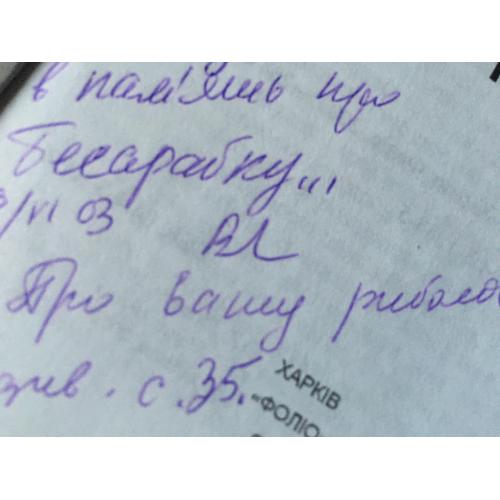 в пам'ять про
Бесарабку...
/VI 03
Про вашу
див. с. 35.
ХАРКІВ
«ФОЛІО